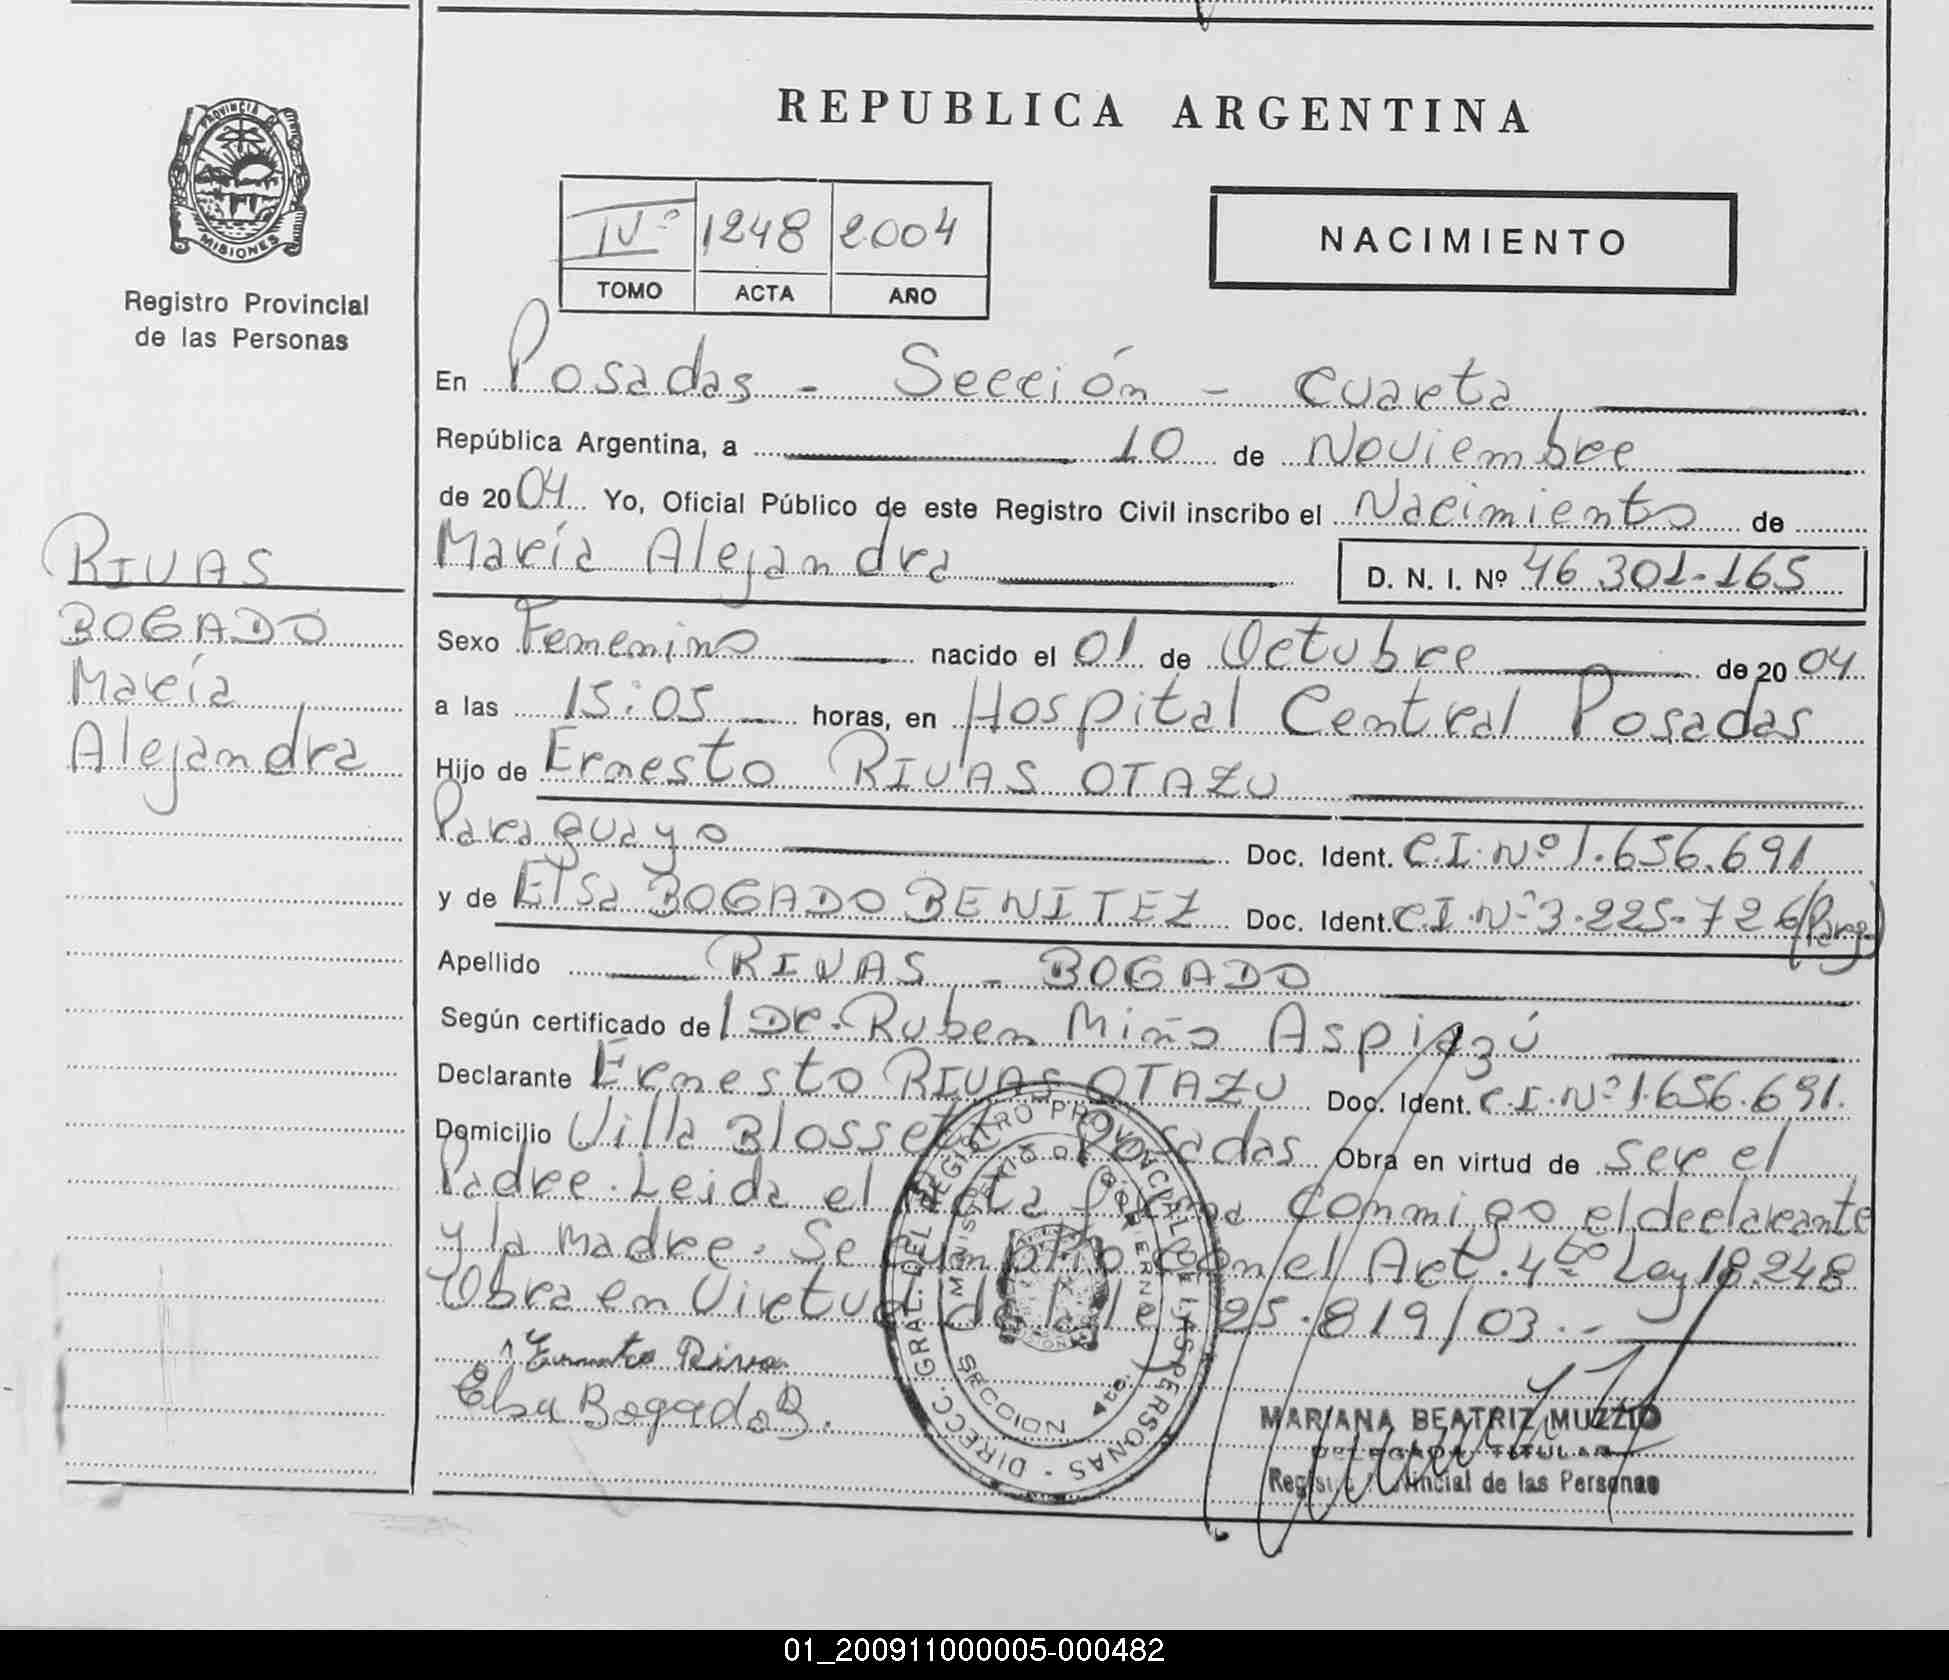 PROVINCIA DE
MISIONES
Registro Provincial
de las Personas
RIVAS
BOGADO
María
Alejandra
REPUBLICA ARGENTINA
IVº 1248 2004
TOMO ACTA AÑO
NACIMIENTO
En Posadas - Sección - Cuarta
República Argentina, a 10 de Noviembre
de 2004 Yo, Oficial Público de este Registro Civil inscribo el Nacimiento de
María Alejandra D. N. I. Nº 46.301.165
Sexo Femenino nacido el 01 de Octubre de 2004
a las 15:05 horas, en Hospital Central Posadas
Hijo de Ernesto RIVAS OTAZU
Paraguayo Doc. Ident. C.I. Nº 1.656.691
y de Elsa BOGADO BENITEZ Doc. Ident. C.I. Nº 3.225.726 (Parg)
Apellido RIVAS - BOGADO
Según certificado de l Dr. Ruben Miño Aspiazú
Declarante Ernesto RIVAS OTAZU Doc. Ident. C.I. Nº 1.656.691.
Domicilio Villa Blosset Posadas Obra en virtud de ser el
Padre. Leida el Acta firma conmigo el declarante
y la madre. Se cumplio con el Art. 4to Ley 18.248
Obra en Virtud de la ley 25.819/03.-
Ernesto Rivas
Elsa Bogado B.
DIRECC. GRAL. DEL REGISTRO PROVINCIAL DE LAS PERSONAS
MINISTERIO DE GOBIERNO
SECCION 4ta.
MARIANA BEATRIZ MUZZIO
DELEGADA TITULAR
Registro Provincial de las Personas
01_200911000005-000482